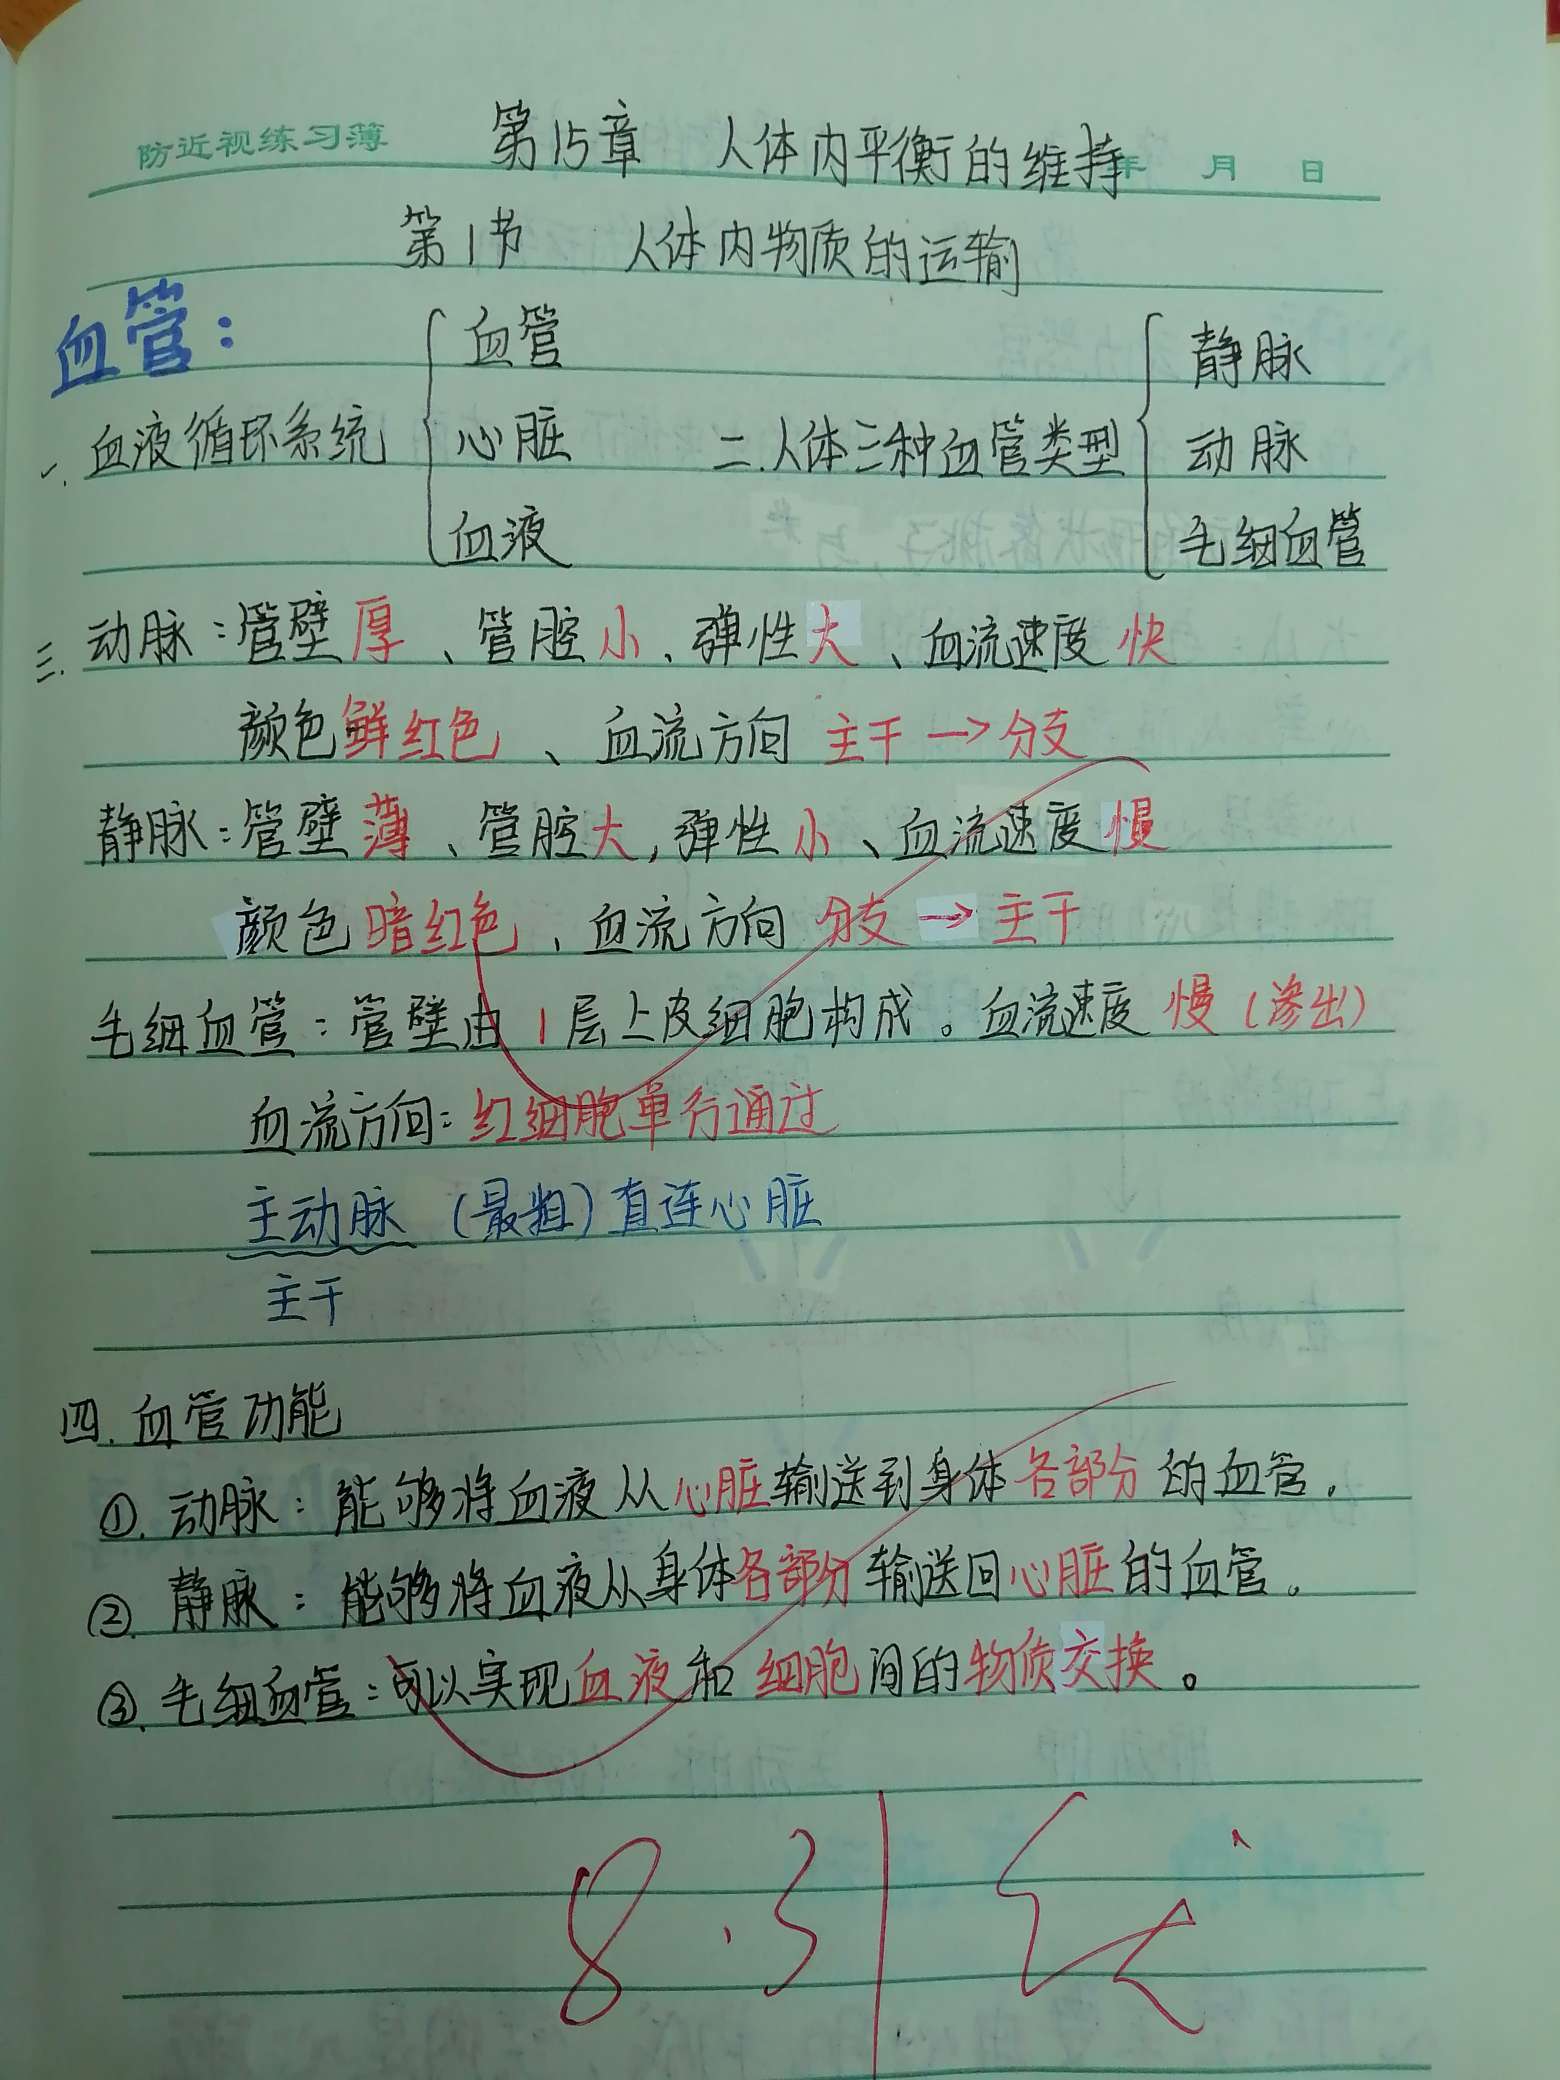 防近视练习薄 第15章 人体内平衡的维持 年 月 日
第1节 人体内物质的运输
血管：
血管
一、血液循环系统 心脏
血液
静脉
二.人体三种血管类型 动脉
毛细血管
三. 动脉：管壁厚、管腔小、弹性大、血流速度快
颜色鲜红色、血流方向 主干→分支
静脉：管壁薄、管腔大，弹性小、血流速度慢
颜色暗红色、血流方向 分支→主干
毛细血管：管壁由1层上皮细胞构成。血流速度 慢（渗出）
血流方向：红细胞单行通过
主动脉（最粗）直连心脏
主干
四. 血管功能
①. 动脉：能够将血液从心脏输送到身体各部分的血管.
②. 静脉：能够将血液从身体各部分输送回心脏的血管。
③. 毛细血管：可以实现血液和细胞间的物质交换。
8.31